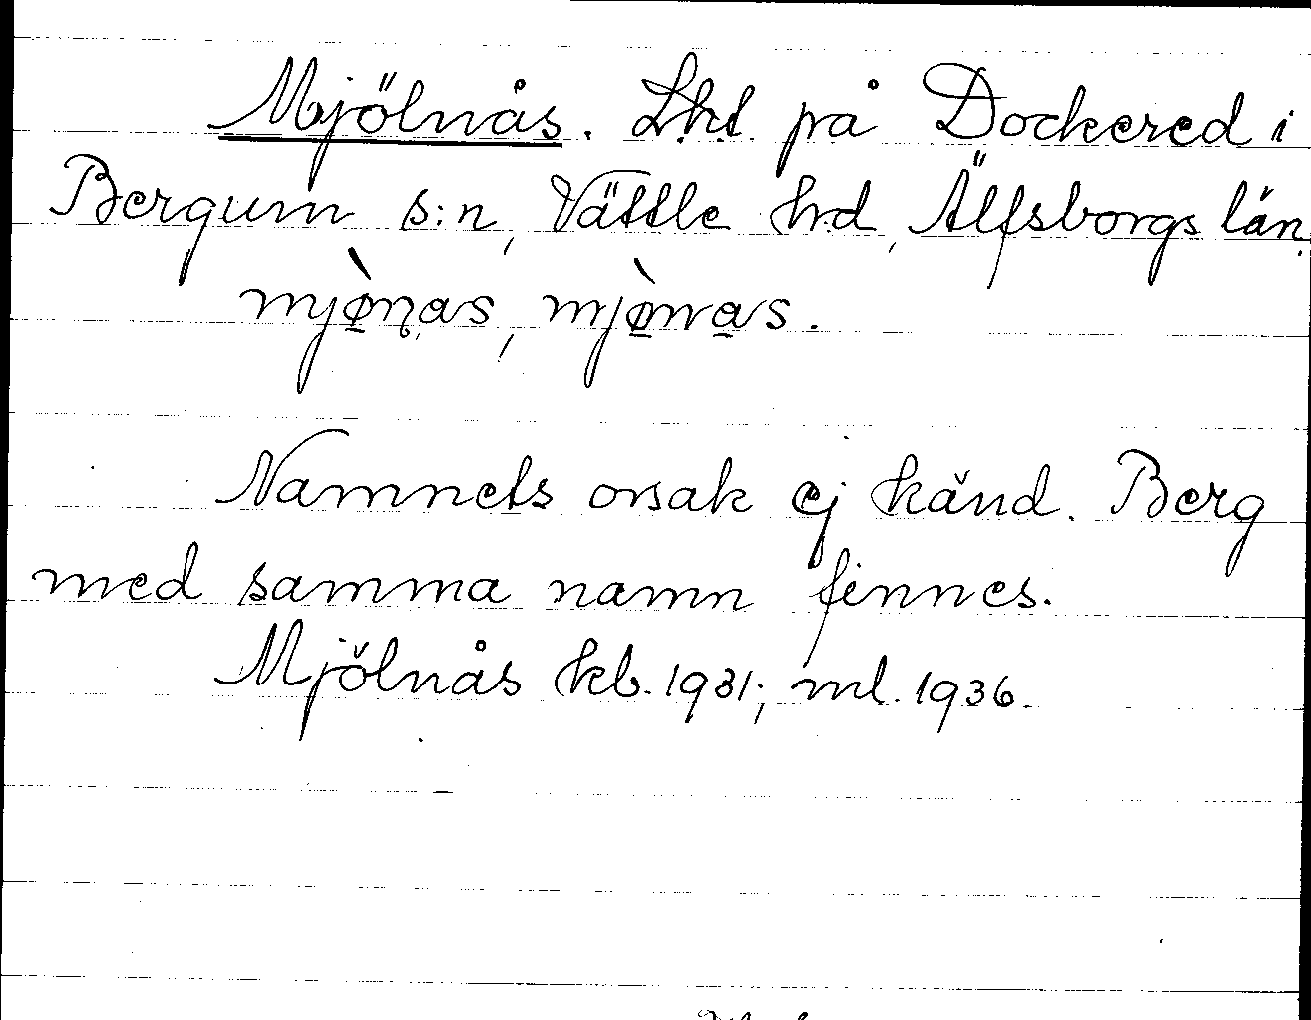 Mjölnås. Lht. på Dockered i
Bergum s:n, Vättle hd, Älfsborgs län.
mjø̀nas, mjø̀nas.
Namnets orsak ej känd. Berg
med samma namn finnes.
Mjölnås kb. 1931; ml. 1936.